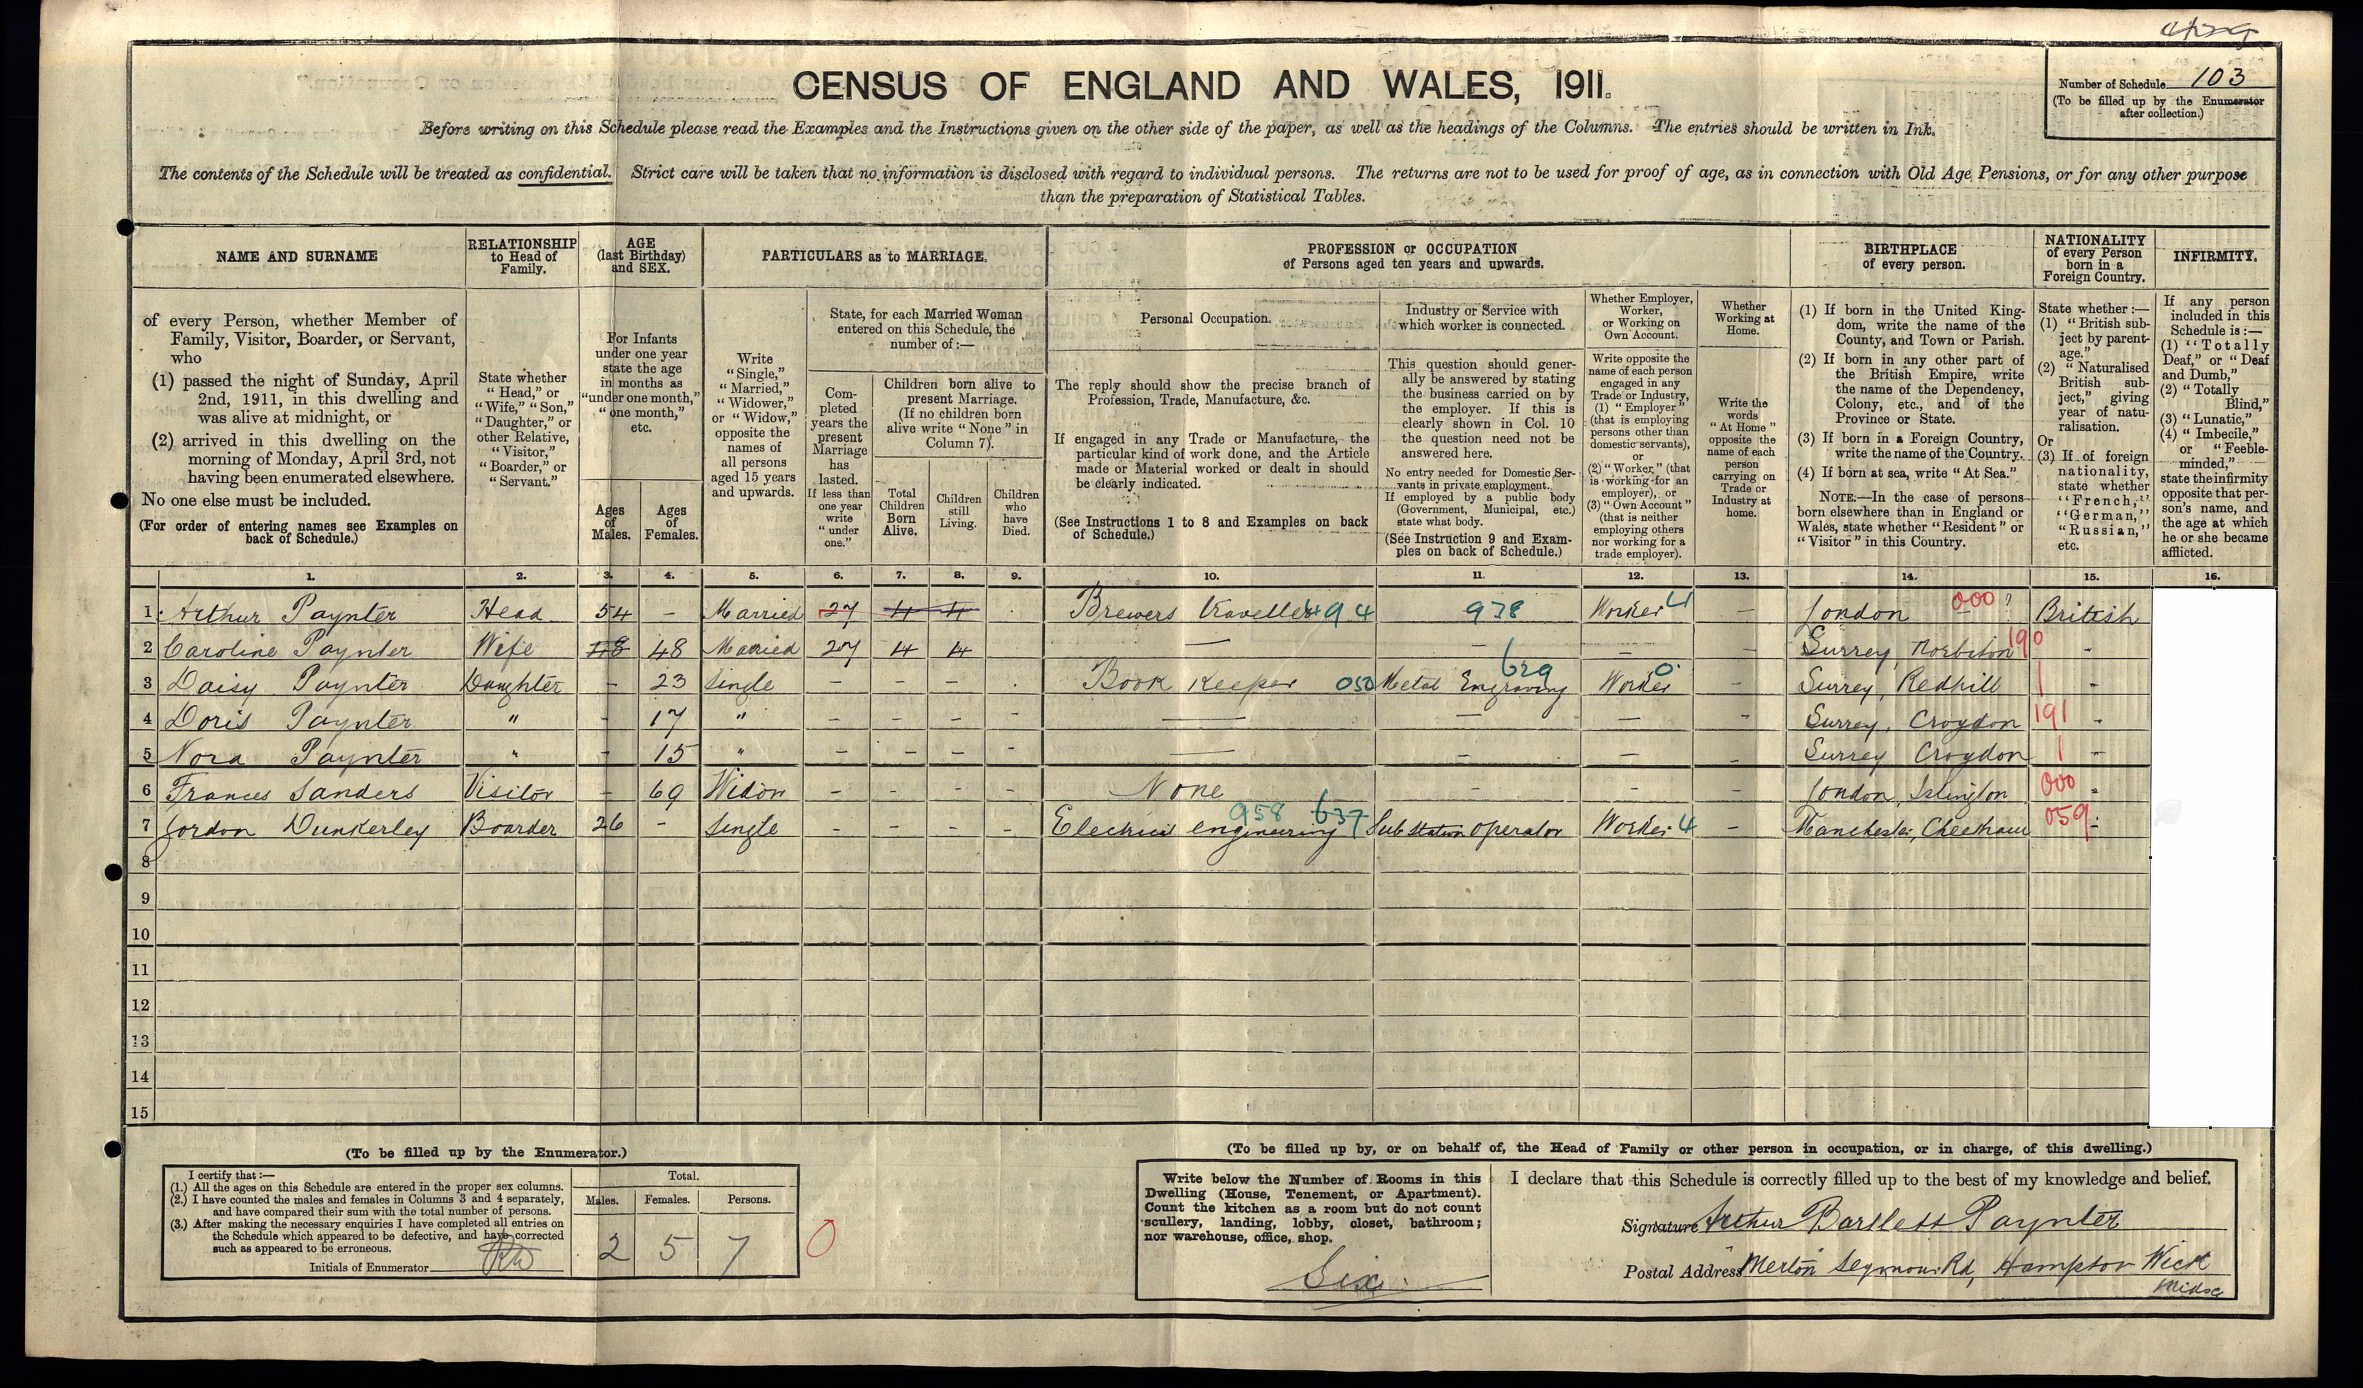 CENSUS OF ENGLAND AND WALES, 1911.
Number of Schedule 103
(To be filled up by the Enumerator
after collection.)
Before writing on this Schedule please read the Examples and the Instructions given on the other side of the paper, as well as the headings of the Columns. The entries should be written in Ink.
The contents of the Schedule will be treated as confidential. Strict care will be taken that no information is disclosed with regard to individual persons. The returns are not to be used for proof of age, as in connection with Old Age Pensions, or for any other purpose
than the preparation of Statistical Tables.
NAME AND SURNAME
of every Person, whether Member of
Family, Visitor, Boarder, or Servant,
who
(1) passed the night of Sunday, April
2nd, 1911, in this dwelling and
was alive at midnight, or
(2) arrived in this dwelling on the
morning of Monday, April 3rd, not
having been enumerated elsewhere.
No one else must be included.
(For order of entering names see Examples on
back of Schedule.)
RELATIONSHIP
to Head of
Family.
State whether
"Head," or
"Wife," "Son,"
"Daughter," or
other Relative,
"Visitor,"
"Boarder," or
"Servant."
AGE
(last Birthday)
and SEX.
For Infants
under one year
state the age
in months as
"under one month,"
"one month,"
etc.
Ages
of
Males.
Ages
of
Females.
PARTICULARS as to MARRIAGE.
Write
"Single,"
"Married,"
"Widower,"
or "Widow,"
opposite the
names of
all persons
aged 15 years
and upwards.
State, for each Married Woman
entered on this Schedule, the
number of:—
Com-
pleted
years the
present
Marriage
has
lasted.
If less than
one year
write
"under
one."
Children born alive to
present Marriage.
(If no children born
alive write "None" in
Column 7).
Total
Children
Born
Alive.
Children
still
Living.
Children
who
have
Died.
PROFESSION or OCCUPATION
of Persons aged ten years and upwards.
Personal Occupation.
The reply should show the precise branch of
Profession, Trade, Manufacture, &c.
If engaged in any Trade or Manufacture, the
particular kind of work done, and the Article
made or Material worked or dealt in should
be clearly indicated.
(See Instructions 1 to 8 and Examples on back
of Schedule.)
Industry or Service with
which worker is connected.
This question should gener-
ally be answered by stating
the business carried on by
the employer. If this is
clearly shown in Col. 10
the question need not be
answered here.
No entry needed for Domestic Ser-
vants in private employment.
If employed by a public body
(Government, Municipal, etc.)
state what body.
(See Instruction 9 and Exam-
ples on back of Schedule.)
Whether Employer,
Worker,
or Working on
Own Account.
Write opposite the
name of each person
engaged in any
Trade or Industry,
(1) "Employer"
(that is employing
persons other than
domestic servants),
or
(2) "Worker" (that
is working for an
employer), or
(3) "Own Account"
(that is neither
employing others
nor working for a
trade employer).
Whether
Working at
Home.
Write the
words
"At Home"
opposite the
name of each
person
carrying on
Trade or
Industry at
home.
BIRTHPLACE
of every person.
(1) If born in the United King-
dom, write the name of the
County, and Town or Parish.
(2) If born in any other part of
the British Empire, write
the name of the Dependency,
Colony, etc., and of the
Province or State.
(3) If born in a Foreign Country,
write the name of the Country.
(4) If born at sea, write "At Sea."
NOTE.—In the case of persons
born elsewhere than in England or
Wales, state whether "Resident" or
"Visitor" in this Country.
NATIONALITY
of every Person
born in a
Foreign Country.
State whether:—
(1) "British sub-
ject by parent-
age."
(2) "Naturalised
British sub-
ject," giving
year of natu-
ralisation.
Or
(3) If of foreign
nationality,
state whether
"French,"
"German,"
"Russian,"
etc.
INFIRMITY.
If any person
included in this
Schedule is:—
(1) "Totally
Deaf," or "Deaf
and Dumb,"
(2) "Totally
Blind,"
(3) "Lunatic,"
(4) "Imbecile,"
or "Feeble-
minded,"
state the infirmity
opposite that per-
son's name, and
the age at which
he or she became
afflicted.
1. 2. 3. 4. 5. 6. 7. 8. 9. 10. 11. 12. 13. 14. 15. 16.
1 Arthur Paynter Head 54 – Married 27 4 4 Brewers traveller 494 938 Worker 4 – London 000 ? British
2 Caroline Paynter Wife 48 48 Married 27 4 4 — – – – Surrey, Norbiton 190 "
3 Daisy Paynter Daughter – 23 Single – – – Book Keeper 050 Metal Engraving 629 Worker 0 – Surrey, Redhill 1 "
4 Doris Paynter " – 17 " – – – – — – – – Surrey, Croydon 191 "
5 Nora Paynter " – 15 " – – – – — – – – Surrey Croydon 1 "
6 Frances Sanders Visitor – 69 Widow – – – – None – – – London, Islington 000 "
7 Gordon Dunkerley Boarder 26 – Single – – – – Electrical engineering 958 637 Sub station operator Worker 4 – Manchester, Cheetham 059 "
8
9
10
11
12
13
14
15
(To be filled up by the Enumerator.)
I certify that:—
(1.) All the ages on this Schedule are entered in the proper sex columns.
(2.) I have counted the males and females in Columns 3 and 4 separately,
and have compared their sum with the total number of persons.
(3.) After making the necessary enquiries I have completed all entries on
the Schedule which appeared to be defective, and have corrected
such as appeared to be erroneous.
Initials of Enumerator
Total.
Males. Females. Persons.
2 5 7
0
(To be filled up by, or on behalf of, the Head of Family or other person in occupation, or in charge, of this dwelling.)
Write below the Number of Rooms in this
Dwelling (House, Tenement, or Apartment).
Count the kitchen as a room but do not count
scullery, landing, lobby, closet, bathroom;
nor warehouse, office, shop.
Six
I declare that this Schedule is correctly filled up to the best of my knowledge and belief.
Signature Arthur Bartlett Paynter
Postal Address "Merton" Seymour Rd, Hampton Wick
Middx